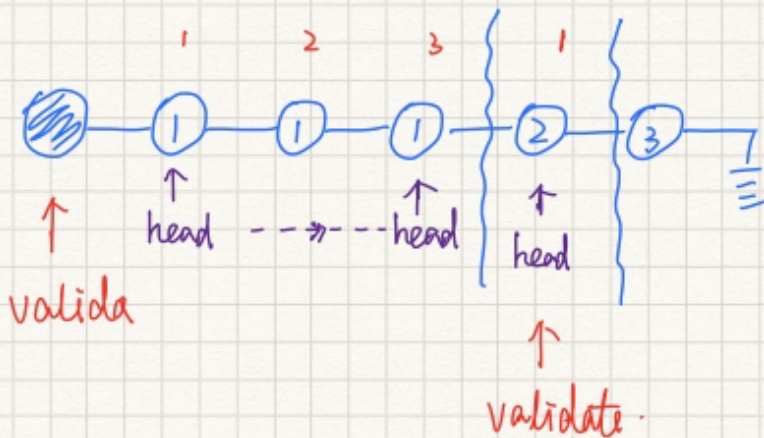 1 2 3 1
1 1 1 2 3
head head head
valida
validate.